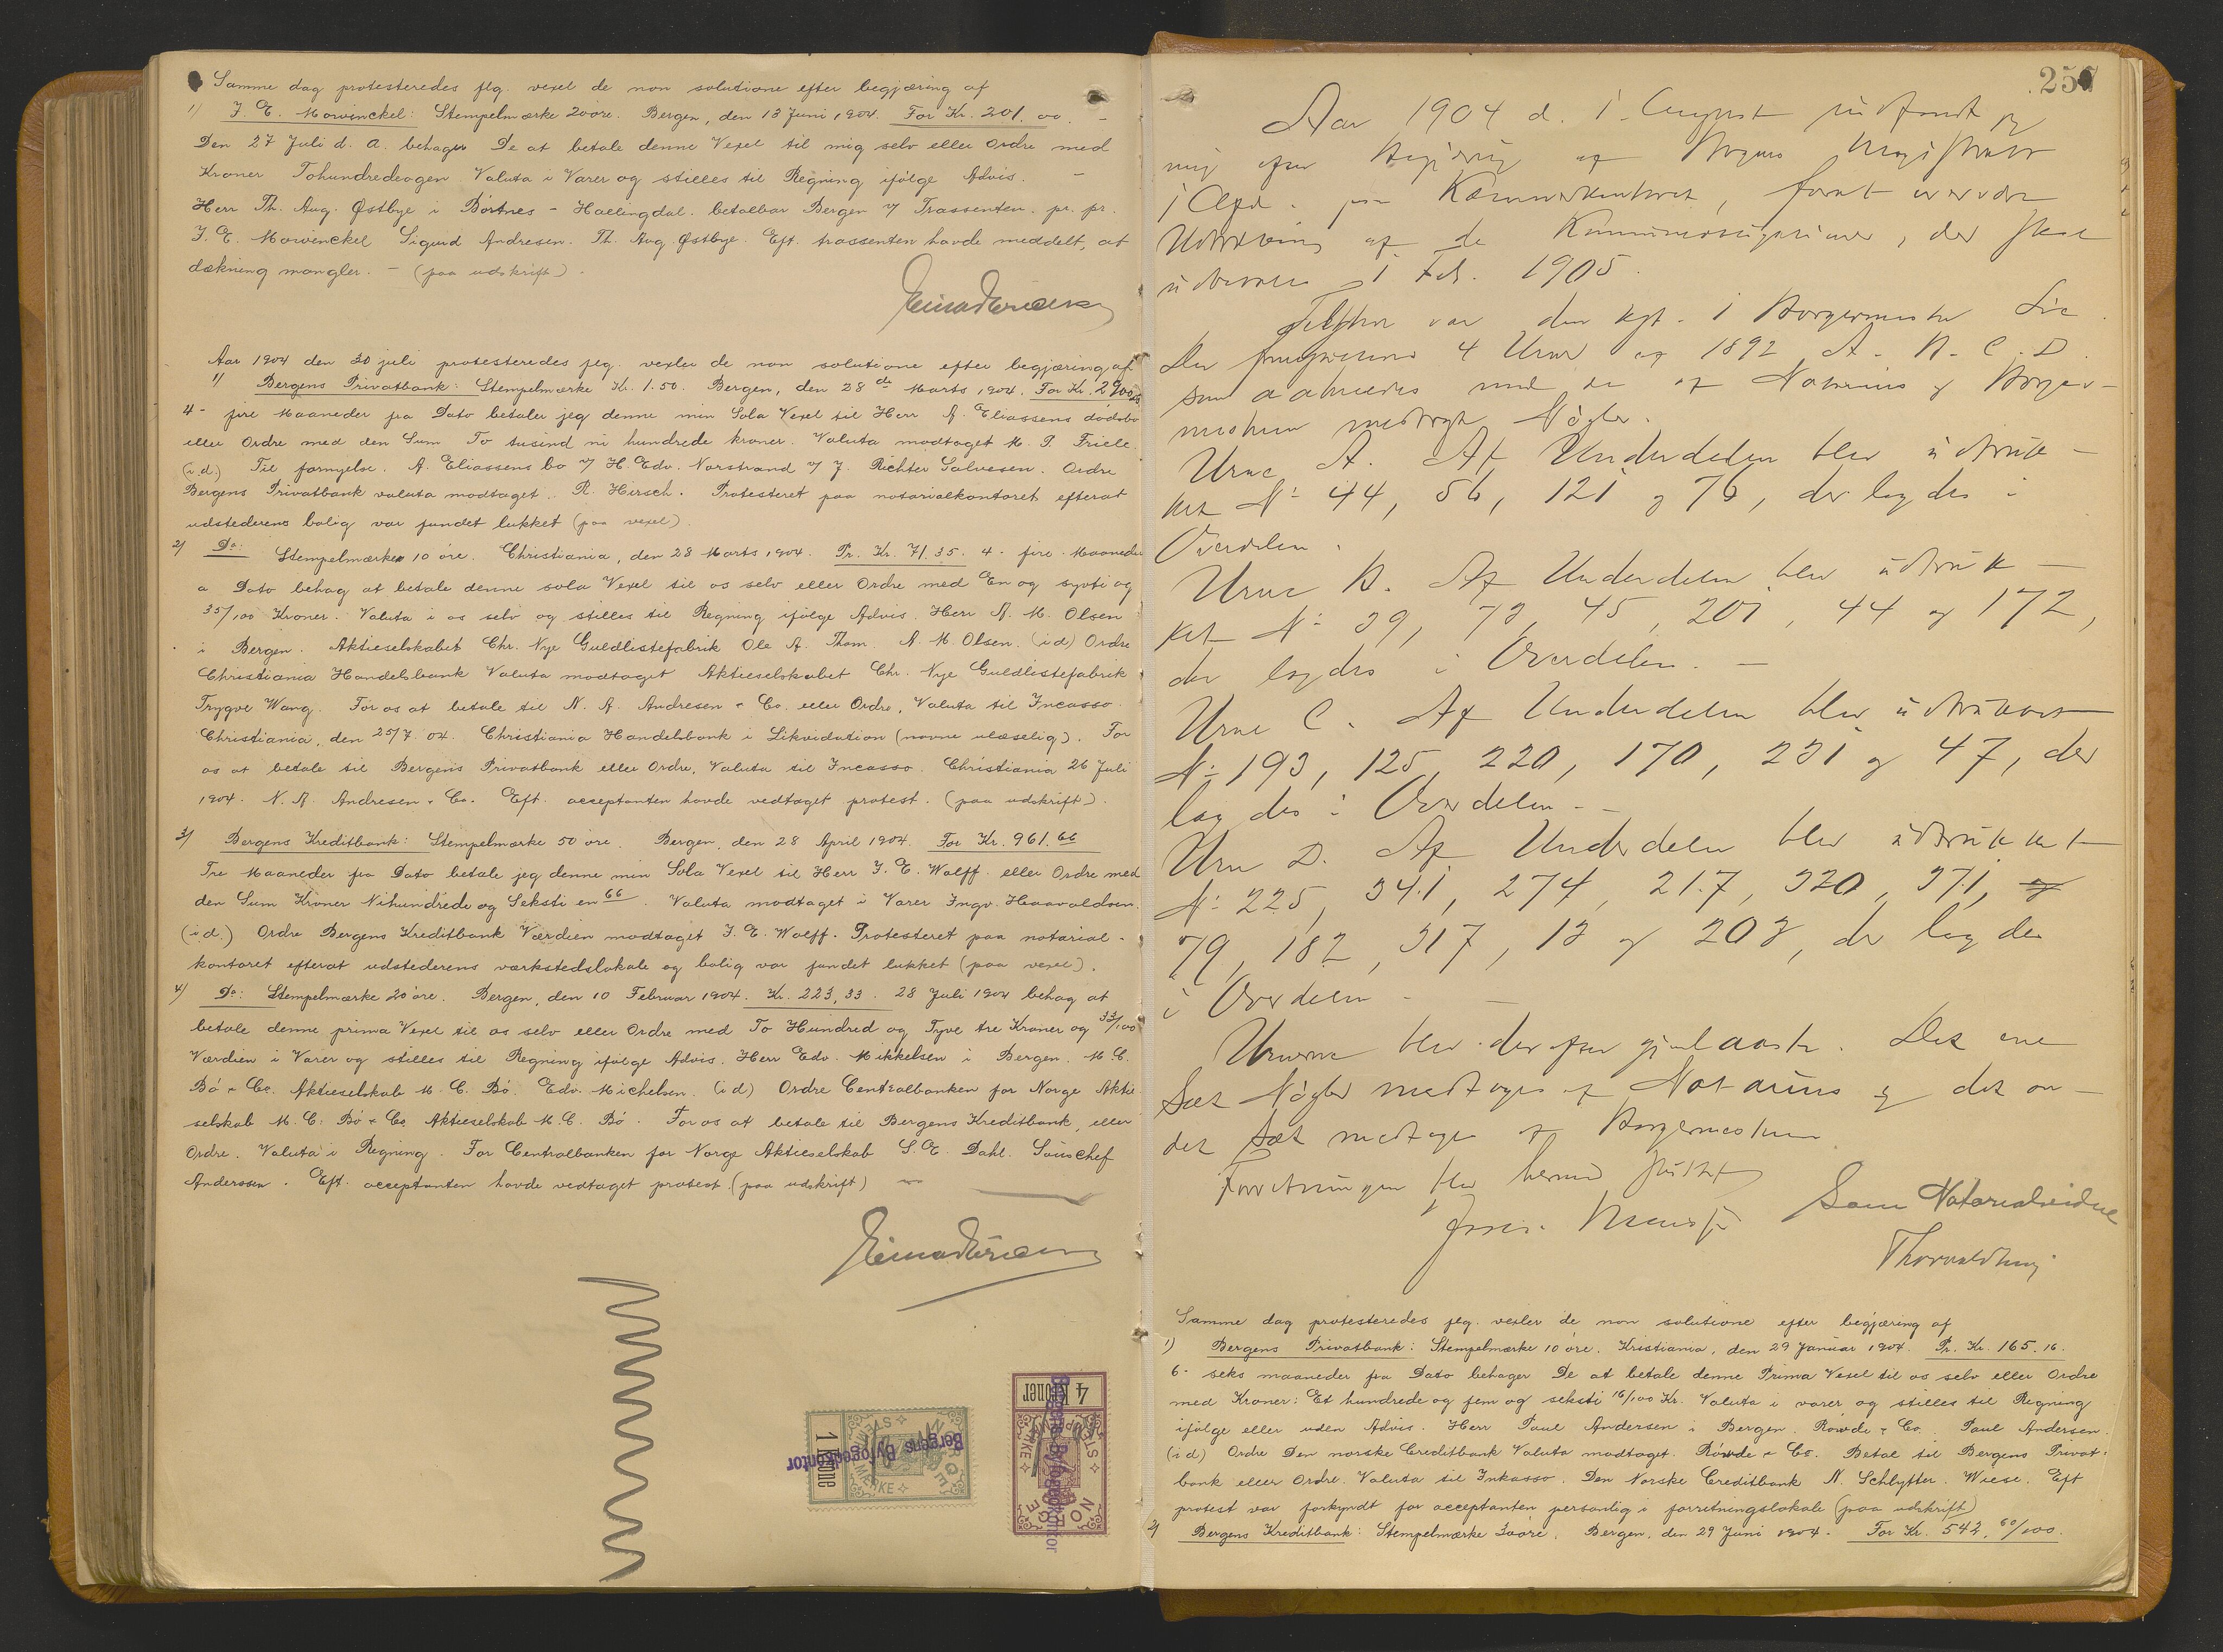 Samme dag protesteredes flg. vexel de non solutione efter begjæring af
1) J. E. Mowinckel: Stempelmærke 20 øre. Bergen, den 13 Juni 1904. For Kr. 201.00. -
Den 27 Juli d. a. behager De at betale denne Vexel til mig selv eller Ordre med
Kroner Tohundredeogen Valuta i Varer og stilles til Regning ifølge Advis. -
Herr Th. Aug. Østbye i Børtnes - Hallingdal. betalbar Bergen v/ Trassenten. pr. pr.
J. E. Mowinckel Sigurd Andresen. Th. Aug. Østbye. Eft. trassenten havde meddelt, at
dækning mangler. - (paa udskrift).
Aar 1904 den 30 juli protesteredes flg. vexler de non solutione efter begjæring af
1) Bergens Privatbank: Stempelmærke Kr. 1.50. Bergen, den 28 de Marts 1904. For Kr. 2900
4- fire Maaneder fra Dato betaler jeg denne min Sola Vexel til Herr A. Eliassens dødsbo
eller Ordre med den Sum To tusind ni hundrede kroner. Valuta modtaget M. T. Friele.
(i.d.) Til fornyelse. A. Eliassens bo v/ H. Edv. Norstrand v/ J. Richter Salvesen. Ordre
Bergens Privatbank valuta modtaget. R. Hirsch. Protesteret paa notarialkontoret efterat
udstederens bolig var fundet lukket (paa vexel).
2) Do: Stempelmærke 10 øre. Christiania, den 28 Marts 1904. Pr. Kr. 71.35. 4- fire Maaneder
a Dato behag at betale denne sola Vexel til os selv eller Ordre med En og sytti og
35/100 Kroner. Valuta i os selv og stilles til Regning ifølge Advis. Herr A. M. Olsen
i Bergen. Aktieselskabet Chr. Nye Guldlistefabrik Ole A. Thom. A. M. Olsen. (i d) Ordre
Christiania Handelsbank Valuta modtaget Aktieselskabet Chr. Nye Guldlistefabrik
Trygve Wang. For os at betale til N. A. Andresen & Co. eller Ordre, Valuta til Incasso.
Christiania, den 25/7. 04. Christiania Handelsbank i Likvidation (navne ulæselig). For
os at betale til Bergens Privatbank eller Ordre, Valuta til Incasso. Christiania 26 Juli
1904. N. A. Andresen & Co. Eft. acceptanten havde vedtaget protest. (paa udskrift).
3) Bergens Kreditbank: Stempelmærke 50 øre. Bergen, den 28 April 1904. For Kr. 961.66
Tre Maaneder fra Dato betale jeg denne min Sola Vexel til Herr J. E. Wolff. eller Ordre med
den Sum Kroner Nihundrede og Seksti en 66. Valuta modtaget i Varer Ingv. Haavaldsen.
(i d.) Ordre Bergens Kreditbank Værdien modtaget J. E. Wolff. Protesteret paa notarial-
kontoret efterat udstederens værkstedslokale og bolig var fundet lukket (paa vexel).
4) Do: Stempelmærke 20 øre. Bergen, den 10 Februar 1904. Kr. 223,33. 28 Juli 1904 behag at
betale denne prima Vexel til os selv eller Ordre med To Hundred og Tyve tre Kroner og 33/100
Værdien i Varer og stilles til Regning ifølge Advis. Herr Edv. Mikkelsen i Bergen. M. C.
Bö & Co. Aktieselskab M. C. Bö. Edv. Michelsen. (i d) Ordre Centralbanken for Norge Aktie
selskab M. C. Bö & Co. Aktieselskab M. C. Bö. For os at betale til Bergens Kreditbank, eller
Ordre. Valuta i Regning. For Centralbanken for Norge Aktieselskab S. E. Dahl. Souschef
Anderssen. Eft. acceptanten havde vedtaget protest. (paa udskrift)
1 Krone
NORGE
STEMPELMÆRKE
Bergens Byfogedkontor
4 Kroner
NORGE
STEMPELMÆRKE
Bergens Byfogedkontor
257
Aar 1904 d. 1. August indfandt jeg
mig efter Begjæring af Bergens Magistrats
1 Afd. paa Kæmnerkontoret, for at overvære
Udtrækning af de Kommuneobligationer, der skal
udbetales 1 Feb. 1905.
Tilstede var den kgt. 1 Borgermester
Der fremvistes 4 Urner af 1892 A. B. C. D.
som aabnedes med de af Notarius og Borger-
mesteren medbragte Nøgler.
Urne A. Af Underdelen blev udtruk-
ket No 44, 56, 121 og 76, der lagdes i
Overdelen.
Urne B. Af Underdelen blev udtruk-
ket No 39, 73, 45, 201, 44 og 172,
der lagdes i Overdelen. -
Urne C. Af Underdelen blev udtrukket
No 193, 125, 220, 170, 231 og 47, der
lagdes i Overdelen. -
Urne D. Af Underdelen blev udtrukket
No 225, 341, 274, 217, 320, 371, og
79, 182, 317, 13 og 203, der lagdes
i Overdelen -
Urnerne blev derefter gjenlaaste. Det ene
Sæt Nøgler modtoges af Notarius og det an-
det Sæt modtoges af Borgermesteren
Forretningen blev hermed sluttet
Som Notarialvidne
Samme dag protesteredes flg. vexler de non solutione efter begjæring af
1) Bergens Privatbank: Stempelmærke 10 øre. Kristiania, den 29 Januar 1904. Pr. Kr. 165.16.
6- seks maaneder fra Dato behager De at betale denne Prima Vexel til os selv eller Ordre
med Kroner: Et hundrede og fem og seksti 16/100 Kr. Valuta i varer og stilles til Regning
ifølge eller uden Advis. Herr Paul Andersen i Bergen. Röwde & Co. Paul Andersen.
(i d) Ordre Den norske Creditbank Valuta modtaget. Röwde & Co. Betal til Bergens Privat-
bank eller Ordre. Valuta til Inkasso. Den Norske Creditbank N. Schlytter. Wiese. Eft
protest var forkyndt for acceptanten personlig i forretningslokale (paa udskrift)
2) Bergens Kreditbank: Stempelmærke 30 øre. Bergen, den 29 Juni 1904. For Kr. 542, 60/100.